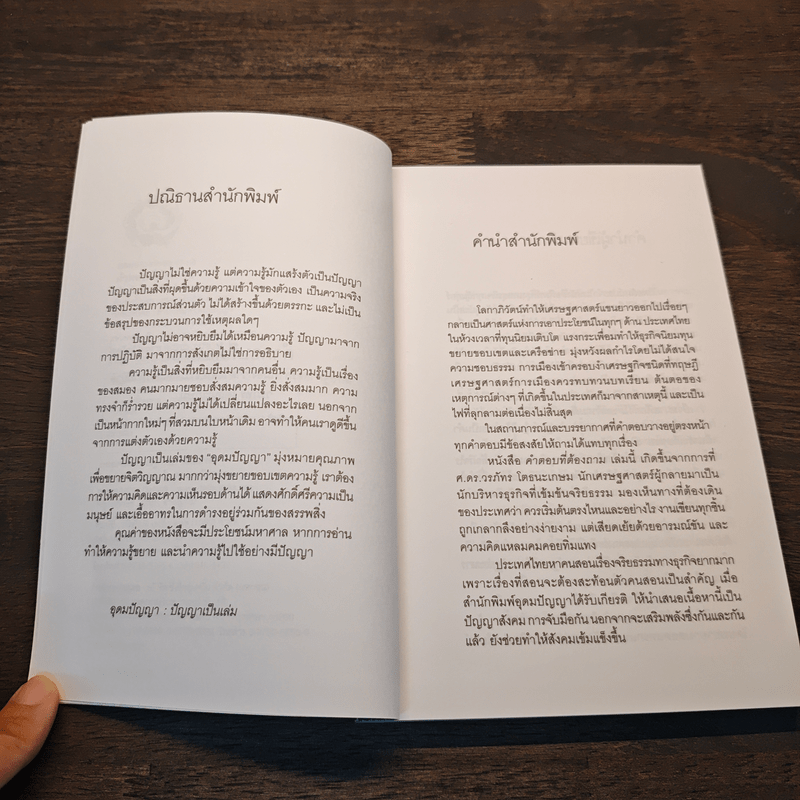 ปณิธานสำนักพิมพ์
ปัญญาไม่ใช่ความรู้ แต่ความรู้มักแสร้งตัวเป็นปัญญา
ปัญญาเป็นสิ่งที่ผุดขึ้นด้วยความเข้าใจของตัวเอง เป็นความจริง
ของประสบการณ์ส่วนตัว ไม่ได้สร้างขึ้นด้วยตรรกะ และไม่เป็น
ข้อสรุปของกระบวนการใช้เหตุผลใดๆ
ปัญญาไม่อาจหยิบยืมได้เหมือนความรู้ ปัญญามาจาก
การปฏิบัติ มาจากการสังเกตไม่ใช่การอธิบาย
ความรู้เป็นสิ่งที่หยิบยืมมาจากคนอื่น ความรู้เป็นเรื่อง
ของสมอง คนมากมายชอบสั่งสมความรู้ ยิ่งสั่งสมมาก ความ
ทรงจำก็ร่ำรวย แต่ความรู้ไม่ได้เปลี่ยนแปลงอะไรเลย นอกจาก
เป็นหน้ากากใหม่ๆ ที่สวมบนใบหน้าเดิม อาจทำให้คนเราดูดีขึ้น
จากการแต่งตัวเองด้วยความรู้
ปัญญาเป็นเล่มของ "อุดมปัญญา" มุ่งหมายคุณภาพ
เพื่อขยายจิตวิญญาณ มากกว่ามุ่งขยายขอบเขตความรู้ เราต้อง
การให้ความคิดและความเห็นรอบด้านได้ แสดงศักดิ์ศรีความเป็น
มนุษย์ และเอื้ออาทรในการดำรงอยู่ร่วมกันของสรรพสิ่ง
คุณค่าของหนังสือจะมีประโยชน์มหาศาล หากการอ่าน
ทำให้ความรู้ขยาย และนำความรู้ไปใช้อย่างมีปัญญา
อุดมปัญญา : ปัญญาเป็นเล่ม
คำนำสำนักพิมพ์
โลกาภิวัตน์ทำให้เศรษฐศาสตร์แขนยาวออกไปเรื่อยๆ
กลายเป็นศาสตร์แห่งการเอาประโยชน์ในทุกๆ ด้าน ประเทศไทย
ในห้วงเวลาที่ทุนนิยมเติบโต แรงกระเพื่อมทำให้ธุรกิจนิยมทุน
ขยายขอบเขตและเครือข่าย มุ่งหวังผลกำไรโดยไม่ได้สนใจ
ความชอบธรรม การเมืองเข้าครอบงำเศรษฐกิจชนิดที่ทฤษฎี
เศรษฐศาสตร์การเมืองควรทบทวนบทเรียน ต้นตอของ
เหตุการณ์ต่างๆ ที่เกิดขึ้นในประเทศก็มาจากสาเหตุนี้ และเป็น
ไฟที่ลุกลามต่อเนื่องไม่สิ้นสุด
ในสถานการณ์และบรรยากาศที่คำตอบวางอยู่ตรงหน้า
ทุกคำตอบมีข้อสงสัยให้ถามได้แทบทุกเรื่อง
หนังสือ คำตอบที่ต้องถาม เล่มนี้ เกิดขึ้นจากการที่
ศ.ดร.วรภัทร โตธนะเกษม นักเศรษฐศาสตร์ผู้กลายมาเป็น
นักบริหารธุรกิจที่เข้มข้นจริยธรรม มองเห็นทางที่ต้องเดิน
ของประเทศว่า ควรเริ่มต้นตรงไหนและอย่างไร งานเขียนทุกชิ้น
ถูกเกลากลึงอย่างง่ายงาม แต่เสียดเย้ยด้วยอารมณ์ขัน และ
ความคิดแหลมคมคอยทิ่มแทง
ประเทศไทยหาคนสอนเรื่องจริยธรรมทางธุรกิจยากมาก
เพราะเรื่องที่สอนจะต้องสะท้อนตัวคนสอนเป็นสำคัญ เมื่อ
สำนักพิมพ์อุดมปัญญาได้รับเกียรติ ให้นำเสนอเนื้อหานี้เป็น
ปัญญาสังคม การจับมือกัน นอกจากจะเสริมพลังซึ่งกันและกัน
แล้ว ยังช่วยทำให้สังคมเข้มแข็งขึ้น